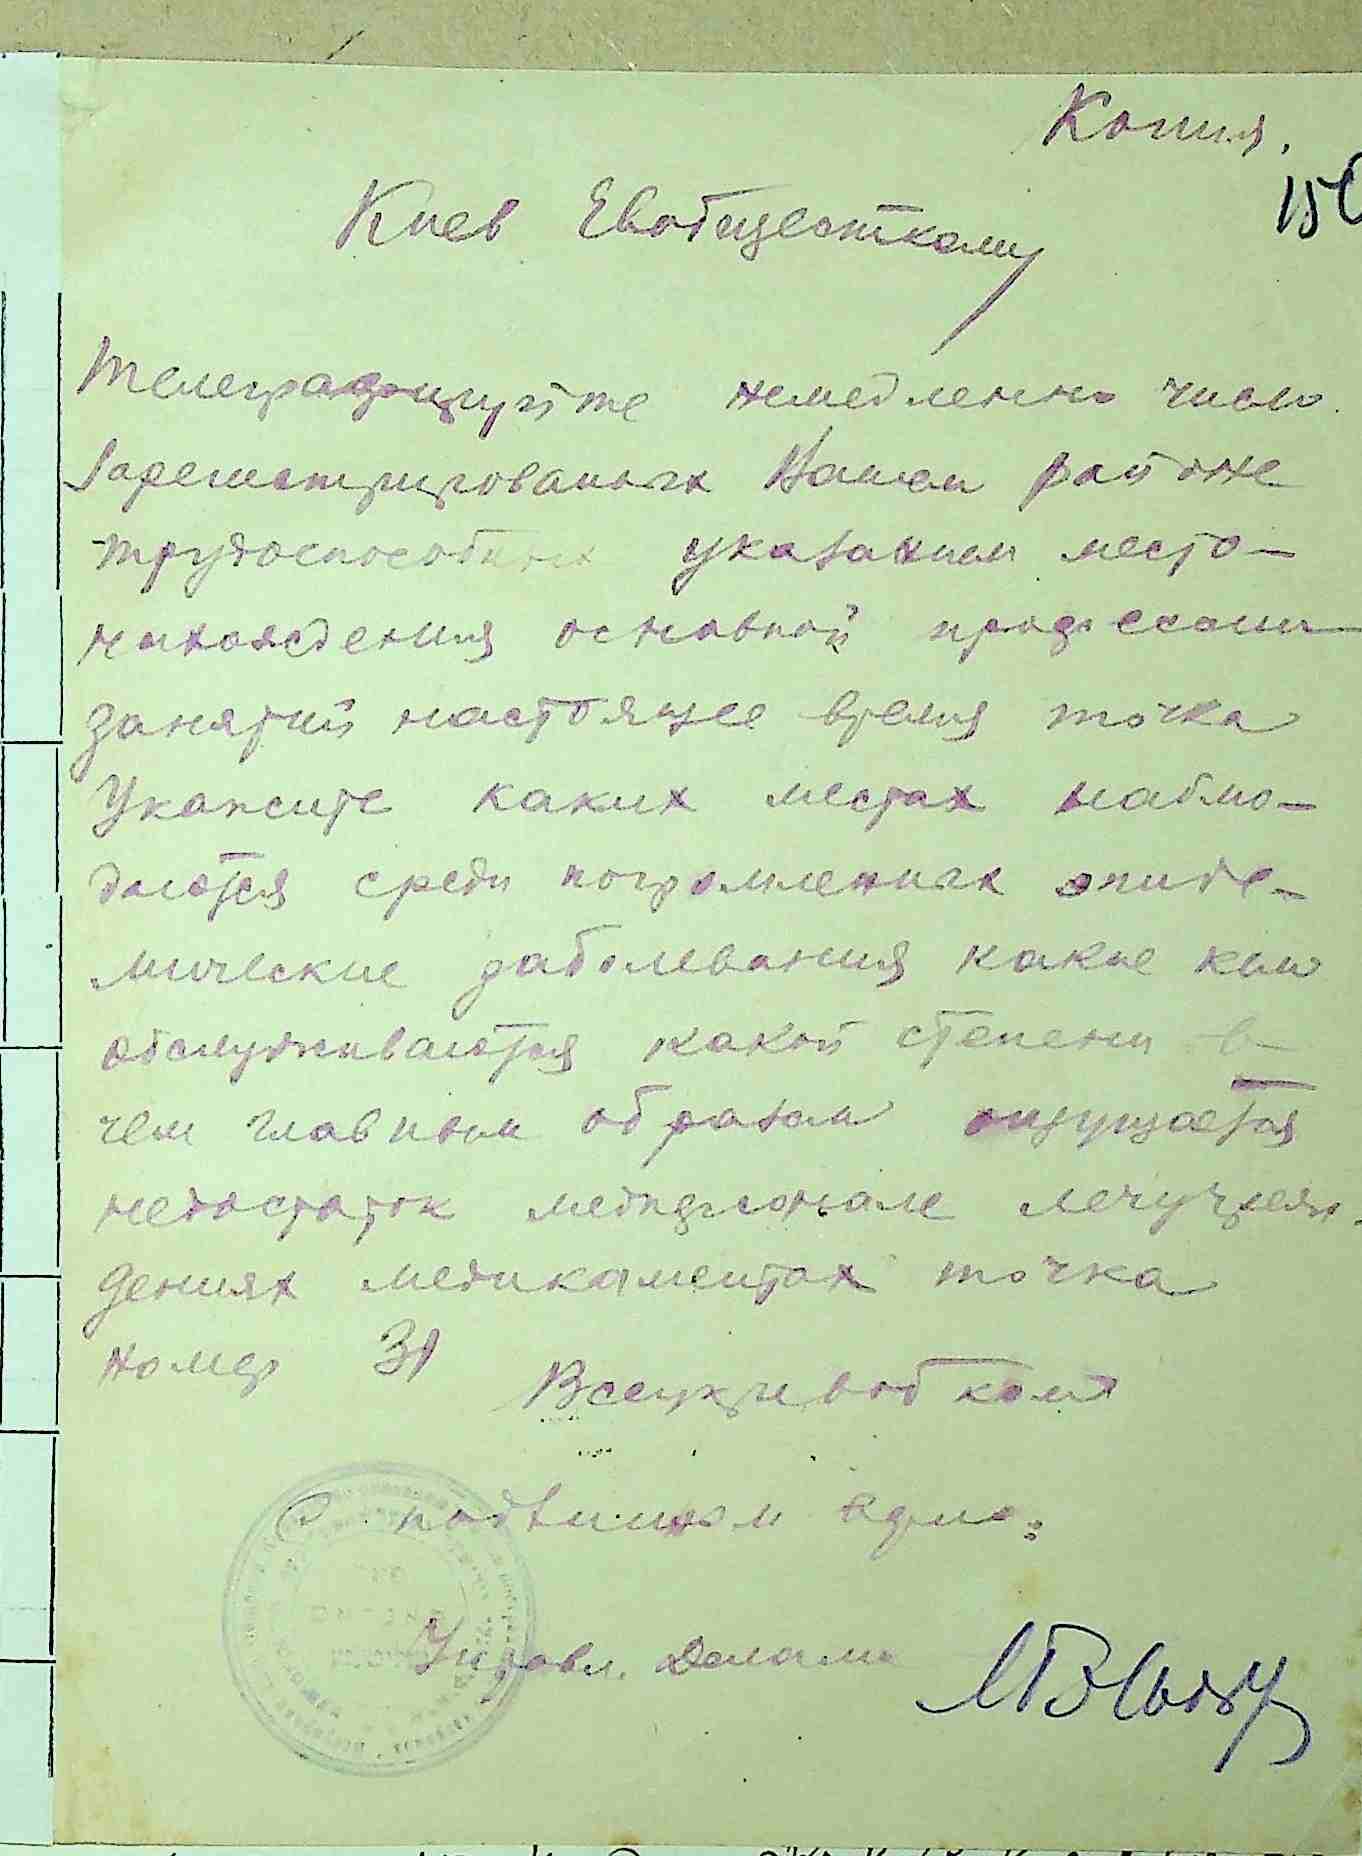 Копия.
150
Киев Евобщесткому
Телеграфируйте немедленно число
зарегистрированных Вашем районе
трудоспособных указанием место-
нахождения основной профессии
занятий настоящее время точка
Укажите каких местах наблю-
даются среди погромленных эпиде-
мические заболевания какие кем
обслуживаются какой степени в
чем главным образом ощущается
недостаток медперсонале лечучреж-
дениях медикаментах точка
номер 31
Всеукревобком
С подлинным верно:
Управл. Делами